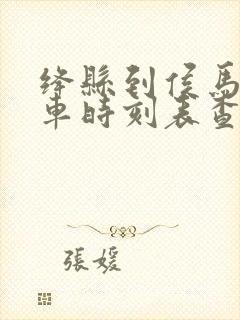 绛縣到侯馬
車時刻表查
張媛